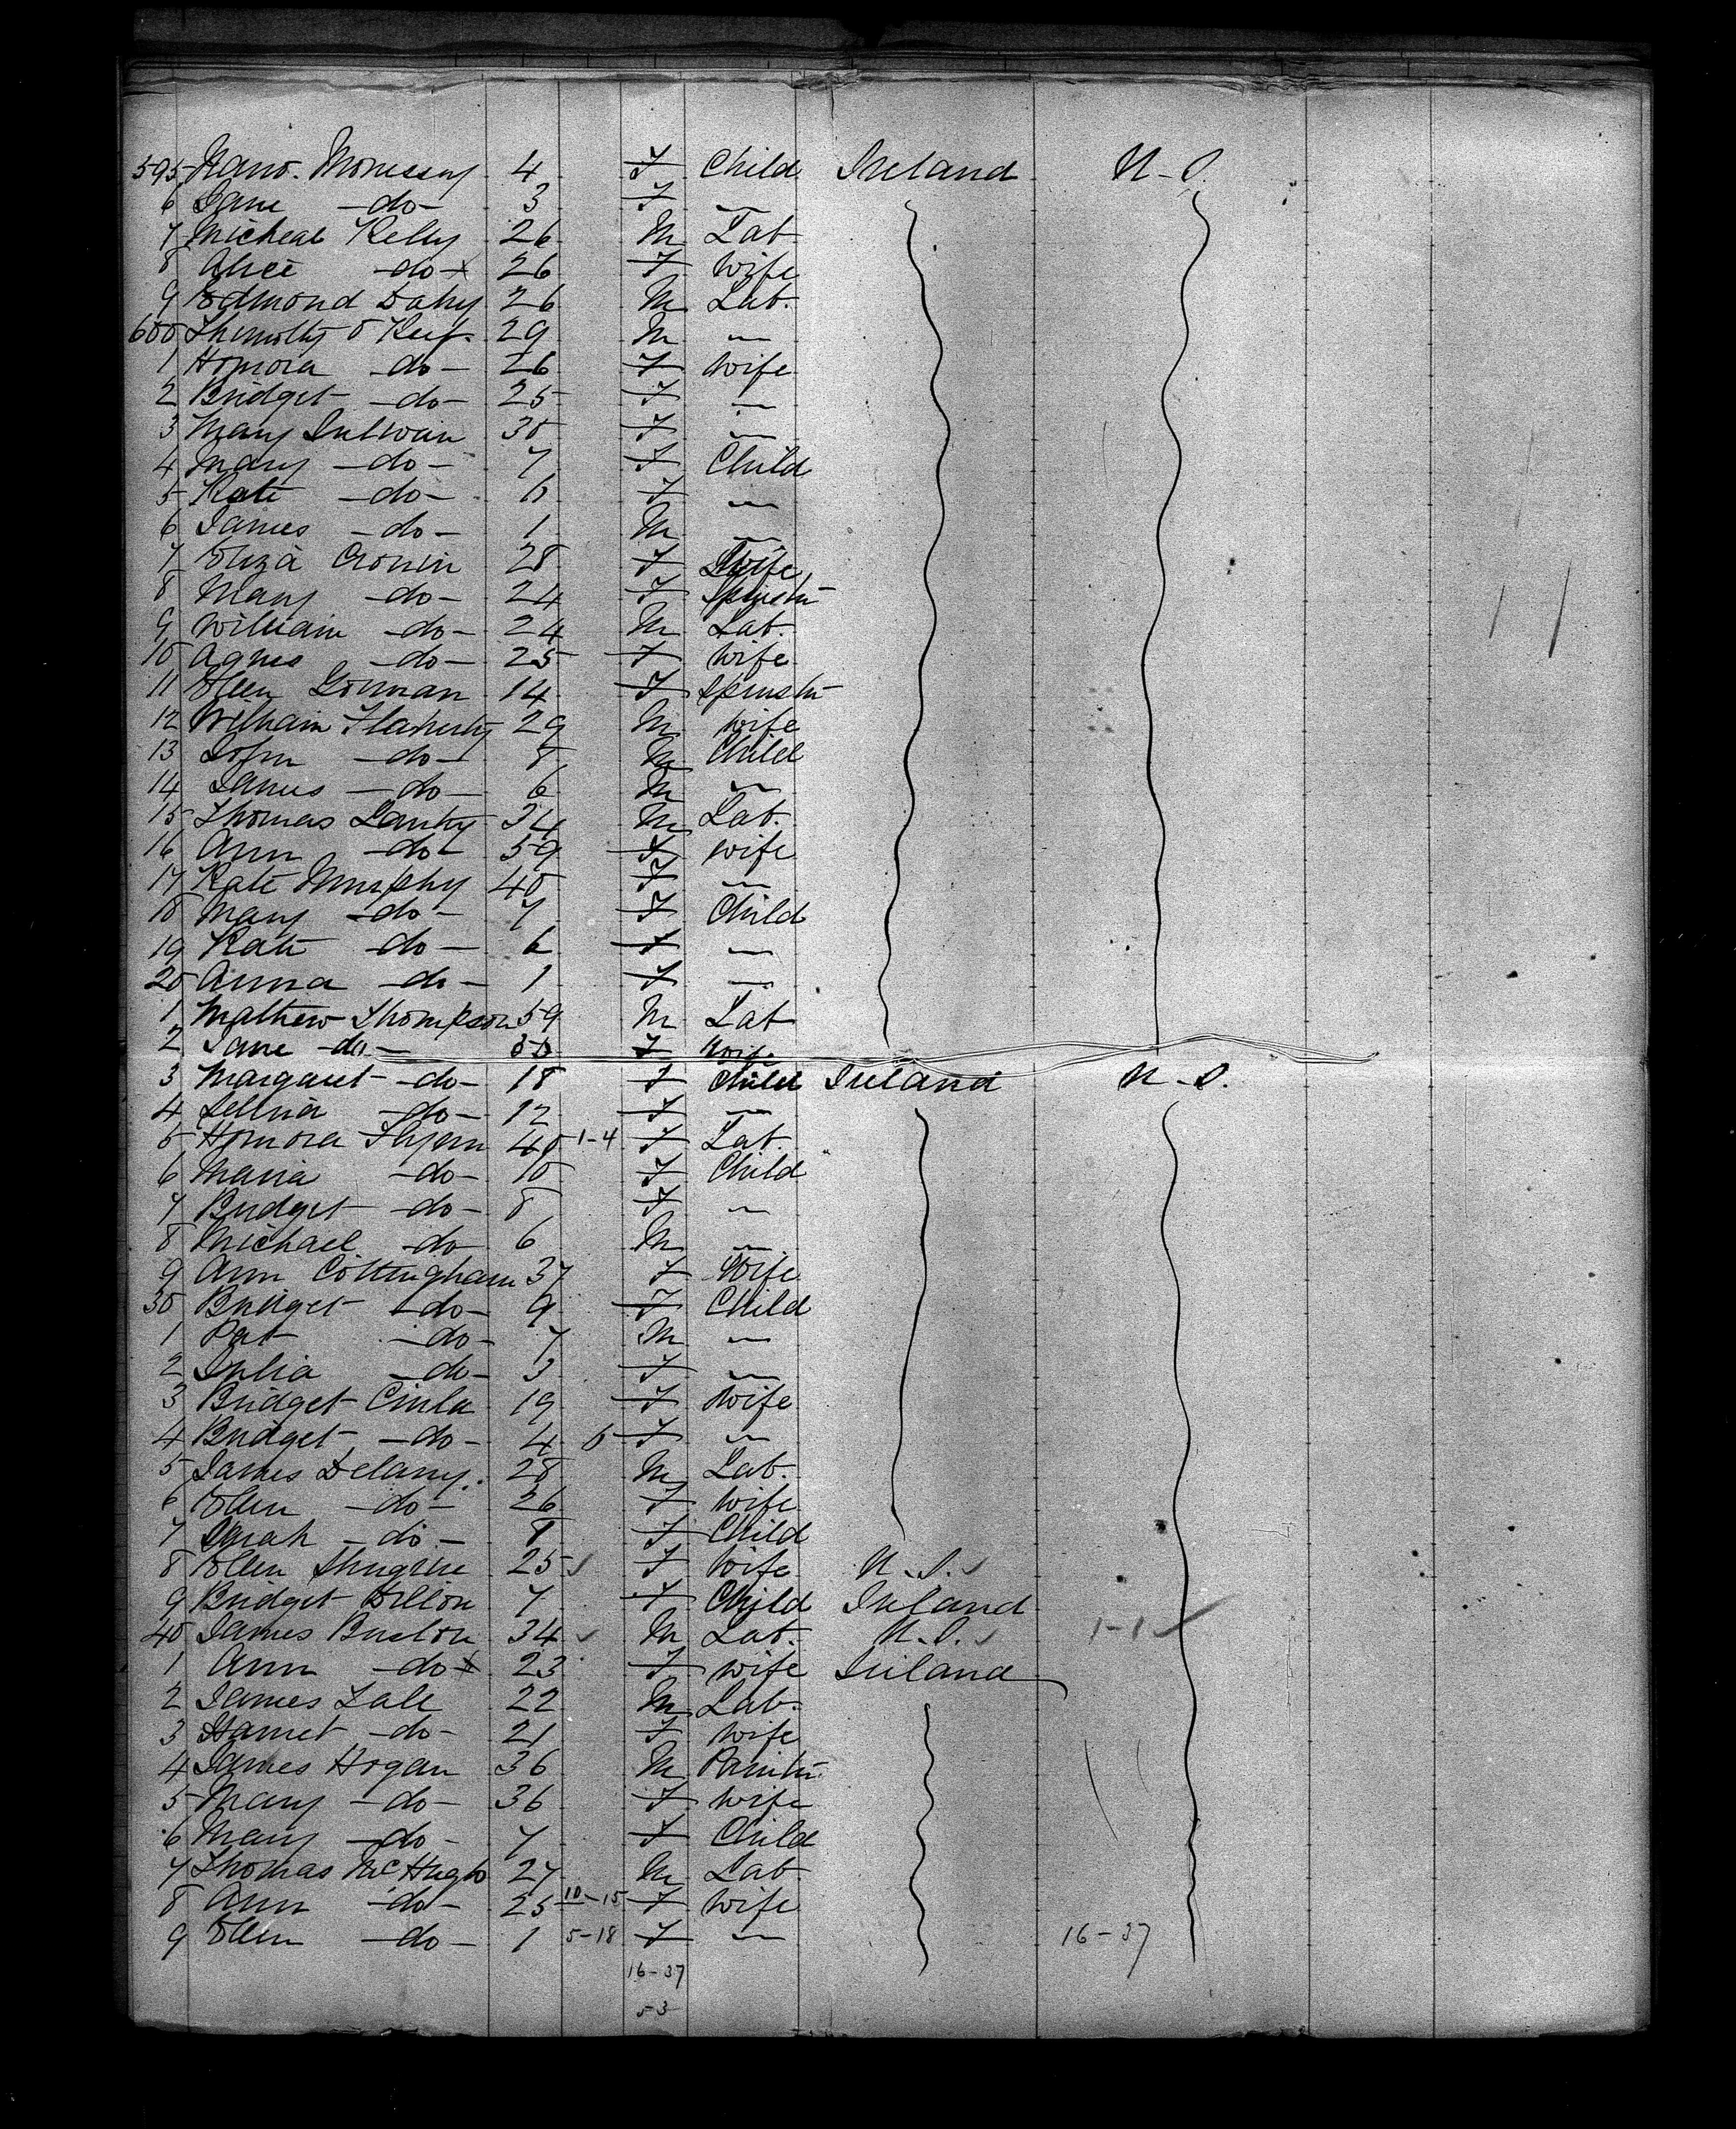 595 Morrissey 4 F Child Ireland U.S.
6 Jane -do- 3 F —
7 Micheal Kelly 26 M Lab
8 Alice -do- x 26 F Wife
9 Edmond Dahy 26 M Lab.
600 Thimothy O Keef 29 M —
1 Honora -do- 26 F Wife
2 Bridget -do- 25 F —
3 Mary Sullivan 30 F —
4 Mary -do- 7 F Child
5 Kate -do- 6 F —
6 James -do- 1 M —
7 Eliza Cronin 28 F Wife
8 Mary -do- 24 F Spinstr
9 William -do- 24 M Lab.
10 Agnes -do- 25 F Wife
11 Ellen Gorman 14 F Spinstr
12 William Flaherty 29 M Wife
13 John -do- 8 M Child
14 James -do- 6 M —
15 Thomas 34 M Lab.
16 Ann -do- 59 F Wife
17 Kate Murphy 40 F —
18 Mary -do- 7 F Child
19 Kate do- 6 F —
20 Anna -do- 1 F —
1 Mathew Thompson 59 M Lab
2 Jane -do- F Wife
3 Margaret -do- 18 F Child Ireland U.S.
4 -do- 12 F —
5 Honora 40 1-4 F Lab.
6 Maria -do- 10 F Child
7 Bridget -do- 8 F —
8 Michael -do- 6 M —
9 Ann Cottingham 37 F Wife
30 Bridget -do- 9 F Child
1 Pat -do- 7 M —
2 Julia -do- 3 F —
3 Bridget 19 F Wife
4 Bridget -do- 4 6 F —
5 James Delany. 28 M Lab.
6 Ellen -do- 26 F Wife
7 Sarah -do- 8 F Child
8 Ellen 25 F Wife U.S.
9 Bridget Dillon 7 F Child Ireland
40 James Burton 34 M Lab. U.S. 1-1
1 Ann -do- x 23 F Wife Ireland
2 James 22 M Lab.
3 Harriet -do- 21 F Wife
4 James Hogan 36 M Paintr
5 Mary -do- 36 F Wife
6 Mary -do- 7 F Child
7 Thomas McHugh 27 M Lab
8 Ann -do- 25 10-15 F Wife
9 Ellen -do- 1 5-18 F — 16-37
16-37
53